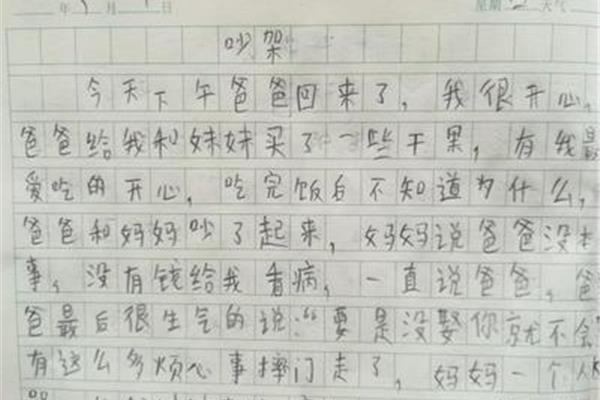 年 月 日 星期 天气
吵架
今天下午爸爸回来了，我很开心，
爸爸给我和妹妹买了一些干果，有我最
爱吃的开心，吃完饭后不知道为什么，
爸爸和妈妈吵了起来，妈妈说爸爸没本
事，没有钱给我看病，一直说爸爸，爸
爸最后很生气的说：“要是没娶你就不会
有这么多烦心事摔门走了，妈妈一个人